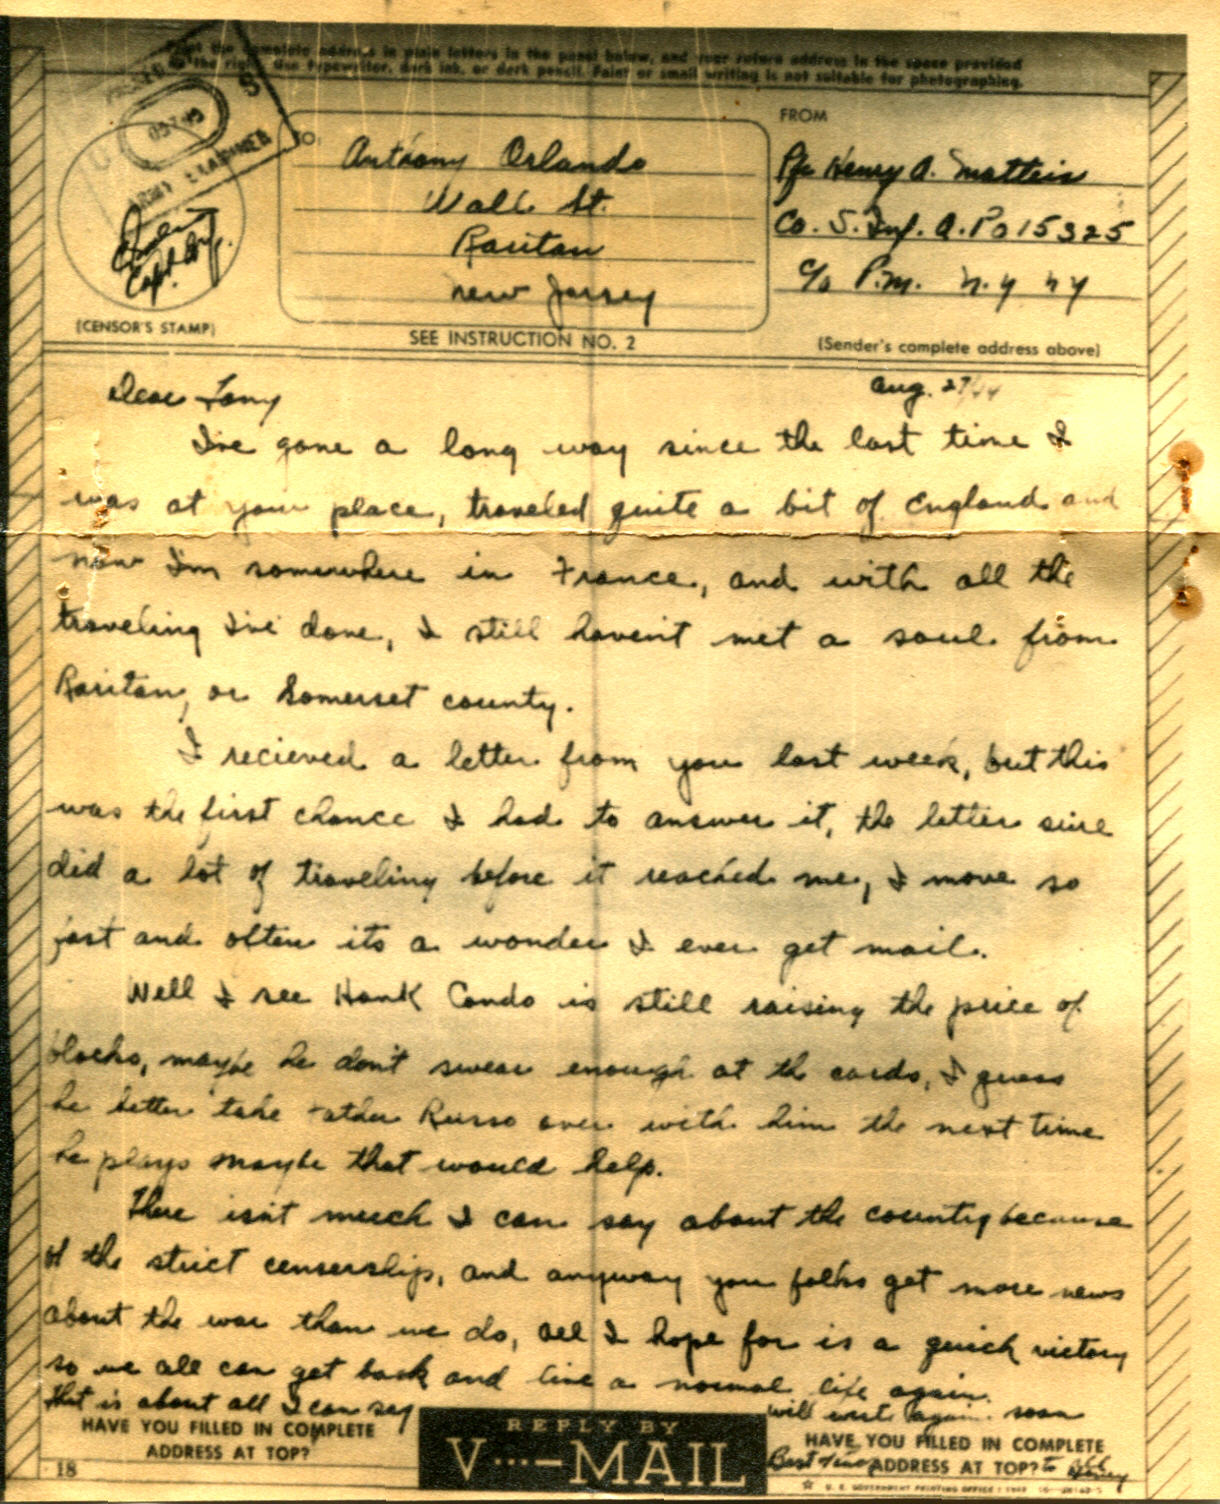 Print the complete address in plain letters in the panel below, and your return address in the space provided
on the right. Use typewriter, dark ink, or dark pencil. Faint or small writing is not suitable for photographing.
ARMY EXAMINER
Capt. Inf.
(CENSOR'S STAMP)
TO:
Anthony Orlando
Wall St.
Raritan
New Jersey
SEE INSTRUCTION NO. 2
FROM
Pfc Henry A. Matteis
Co. S. Inf. A.P.O 15325
c/o P.M. N.Y N Y
(Sender's complete address above)
Aug. 27/44
Dear Tony
I've gone a long way since the last time I
was at your place, traveled quite a bit of England and
now I'm somewhere in France, and with all the
traveling I've done, I still haven't met a soul from
Raritan, or Somerset county.
I recieved a letter from you last week, but this
was the first chance I had to answer it, the letter sure
did a lot of traveling before it reached me, I move so
fast and often its a wonder I ever get mail.
Well I see Hank Condo is still raising the price of
blocks, maybe he don't swear enough at the cards, I guess
he better take Father Russo over with him the next time
he plays maybe that would help.
There isn't much I can say about the country because
of the strict censership, and anyway you folks get more news
about the war than we do, all I hope for is a quick victory
so we all can get back and live a normal life again.
that is about all I can say
will write again soon
HAVE YOU FILLED IN COMPLETE
ADDRESS AT TOP?
REPLY BY
V···—MAIL
HAVE YOU FILLED IN COMPLETE
ADDRESS AT TOP?
Best to all
Henry
18
☆ U. S. GOVERNMENT PRINTING OFFICE : 1943